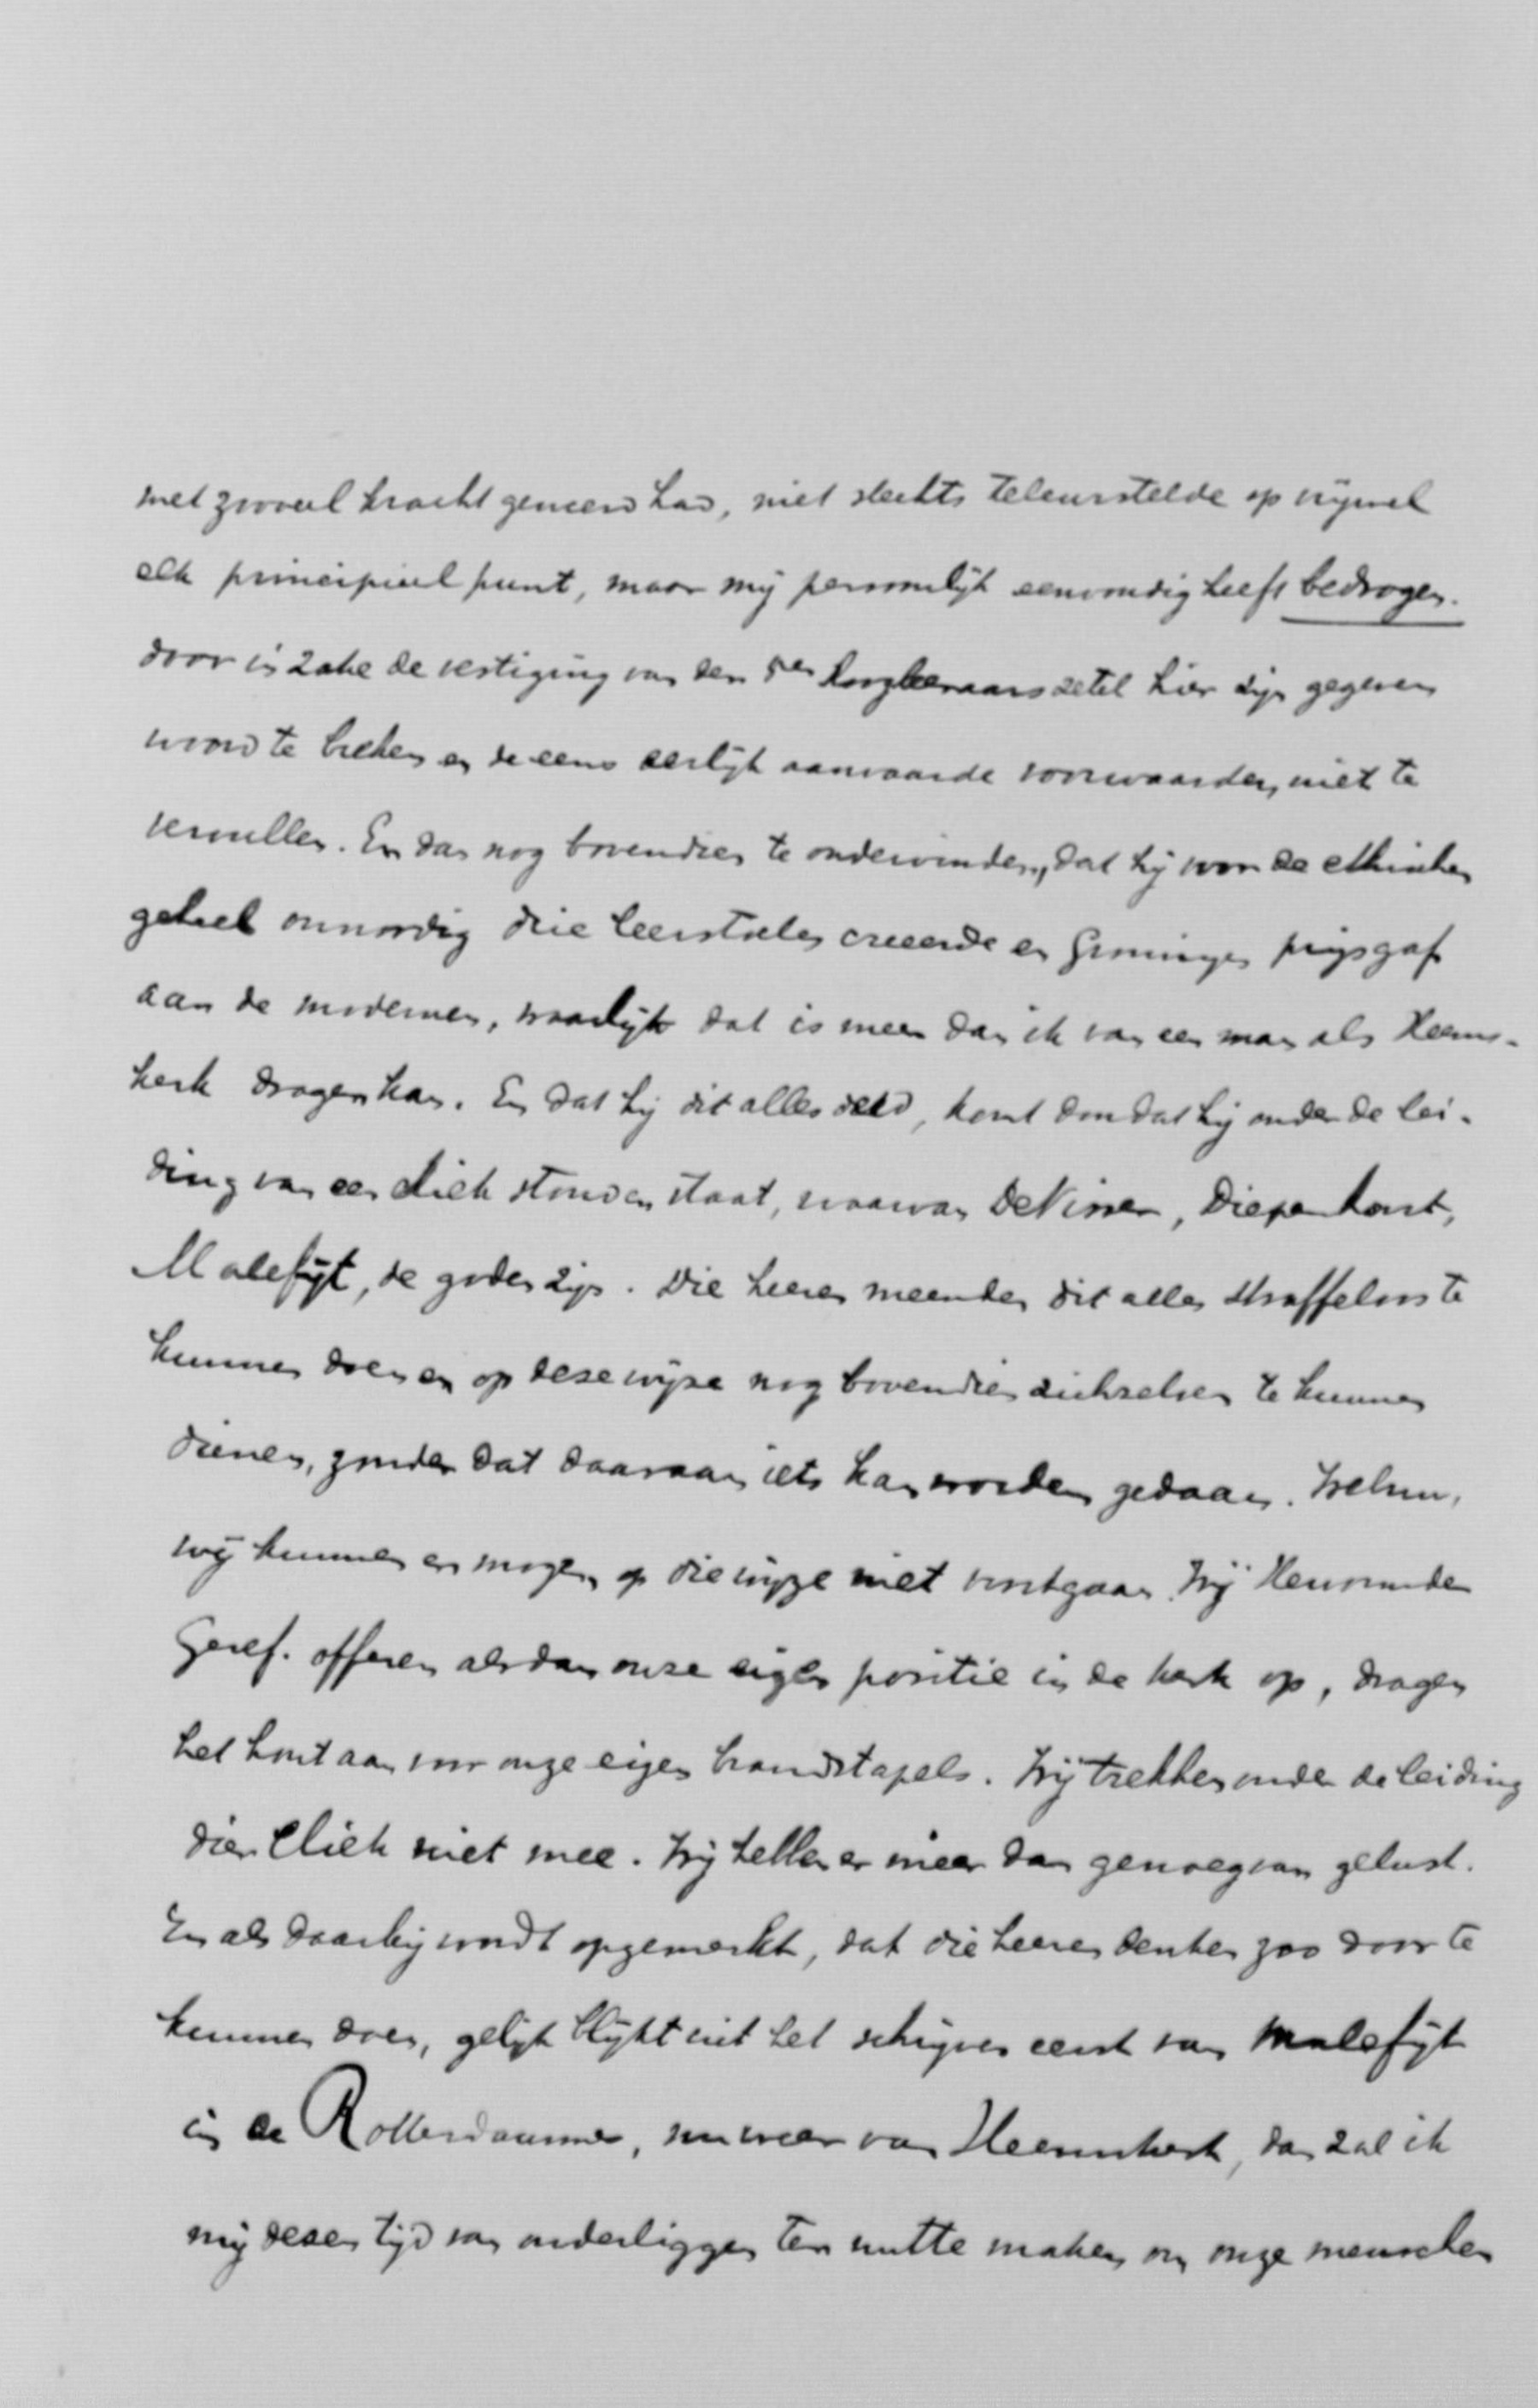 met zooveel kracht geweerd had, niet slechts teleurstelde op vrijwel
elk principieel punt, maar mij persoonlijk eenvoudig heeft bedrogen.
door in zake de vestiging van den 5en hoogleeraarszetel hier zijn gegeven
woord te breken en de eens eerlijk aanvaarde voorwaarden, niet te
vervullen. En dan nog bovendien te ondervinden, dat hij voor de ethischen
geheel onnoodig drie leerstoelen creëerde en Groningen prijsgaf
aan de modernen, waarlijk dat is meer dan ik van een man als Heems-
kerk dragen kan. En dat hij dit alles deed, komt doordat hij onder de lei-
ding van een cliek stond en staat, waarvan De Visser, Diepenhorst,
Malefijt, de goden zijn. Die heeren meenden dit alles straffeloos te
kunnen doen en op deze wijze nog bovendien zichzelven te kunnen
dienen, zonder dat daaraan iets kan worden gedaan. Welnu,
wij kunnen en mogen op die wijze niet voortgaan. Wij Hervormden
Geref. offeren alsdan onze eigen positie in de kerk op, dragen
het hout aan voor onze eigen brandstapels. Wij trekken onder de leiding
dier cliek niet mee. Wij hebben er meer dan genoeg van gelust.
En als daarbij wordt opgemerkt, dat die heeren denken zoo door te
kunnen doen, gelijk blijkt uit het schrijven eerst van Malefijt
in de Rotterdammer, nu weer van Heemskerk, dan zal ik
mij dezen tijd van onderliggen ten nutte maken om onze menschen